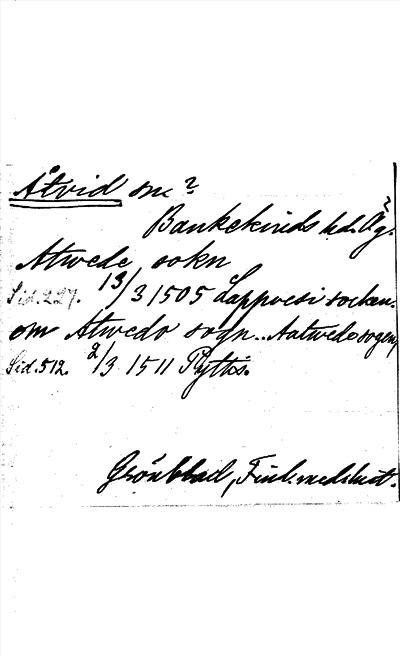 Åtvid sn?
Bankekinds hd. Ög.
Atwede sokn
Sid. 227. 13/3 1505 Lappvesi socken.
om Atwedo sogn.. Aatwedo sogen,
Sid. 512. 2/3 1511 Pyttis.
Grönblad, Finl. medeltid.